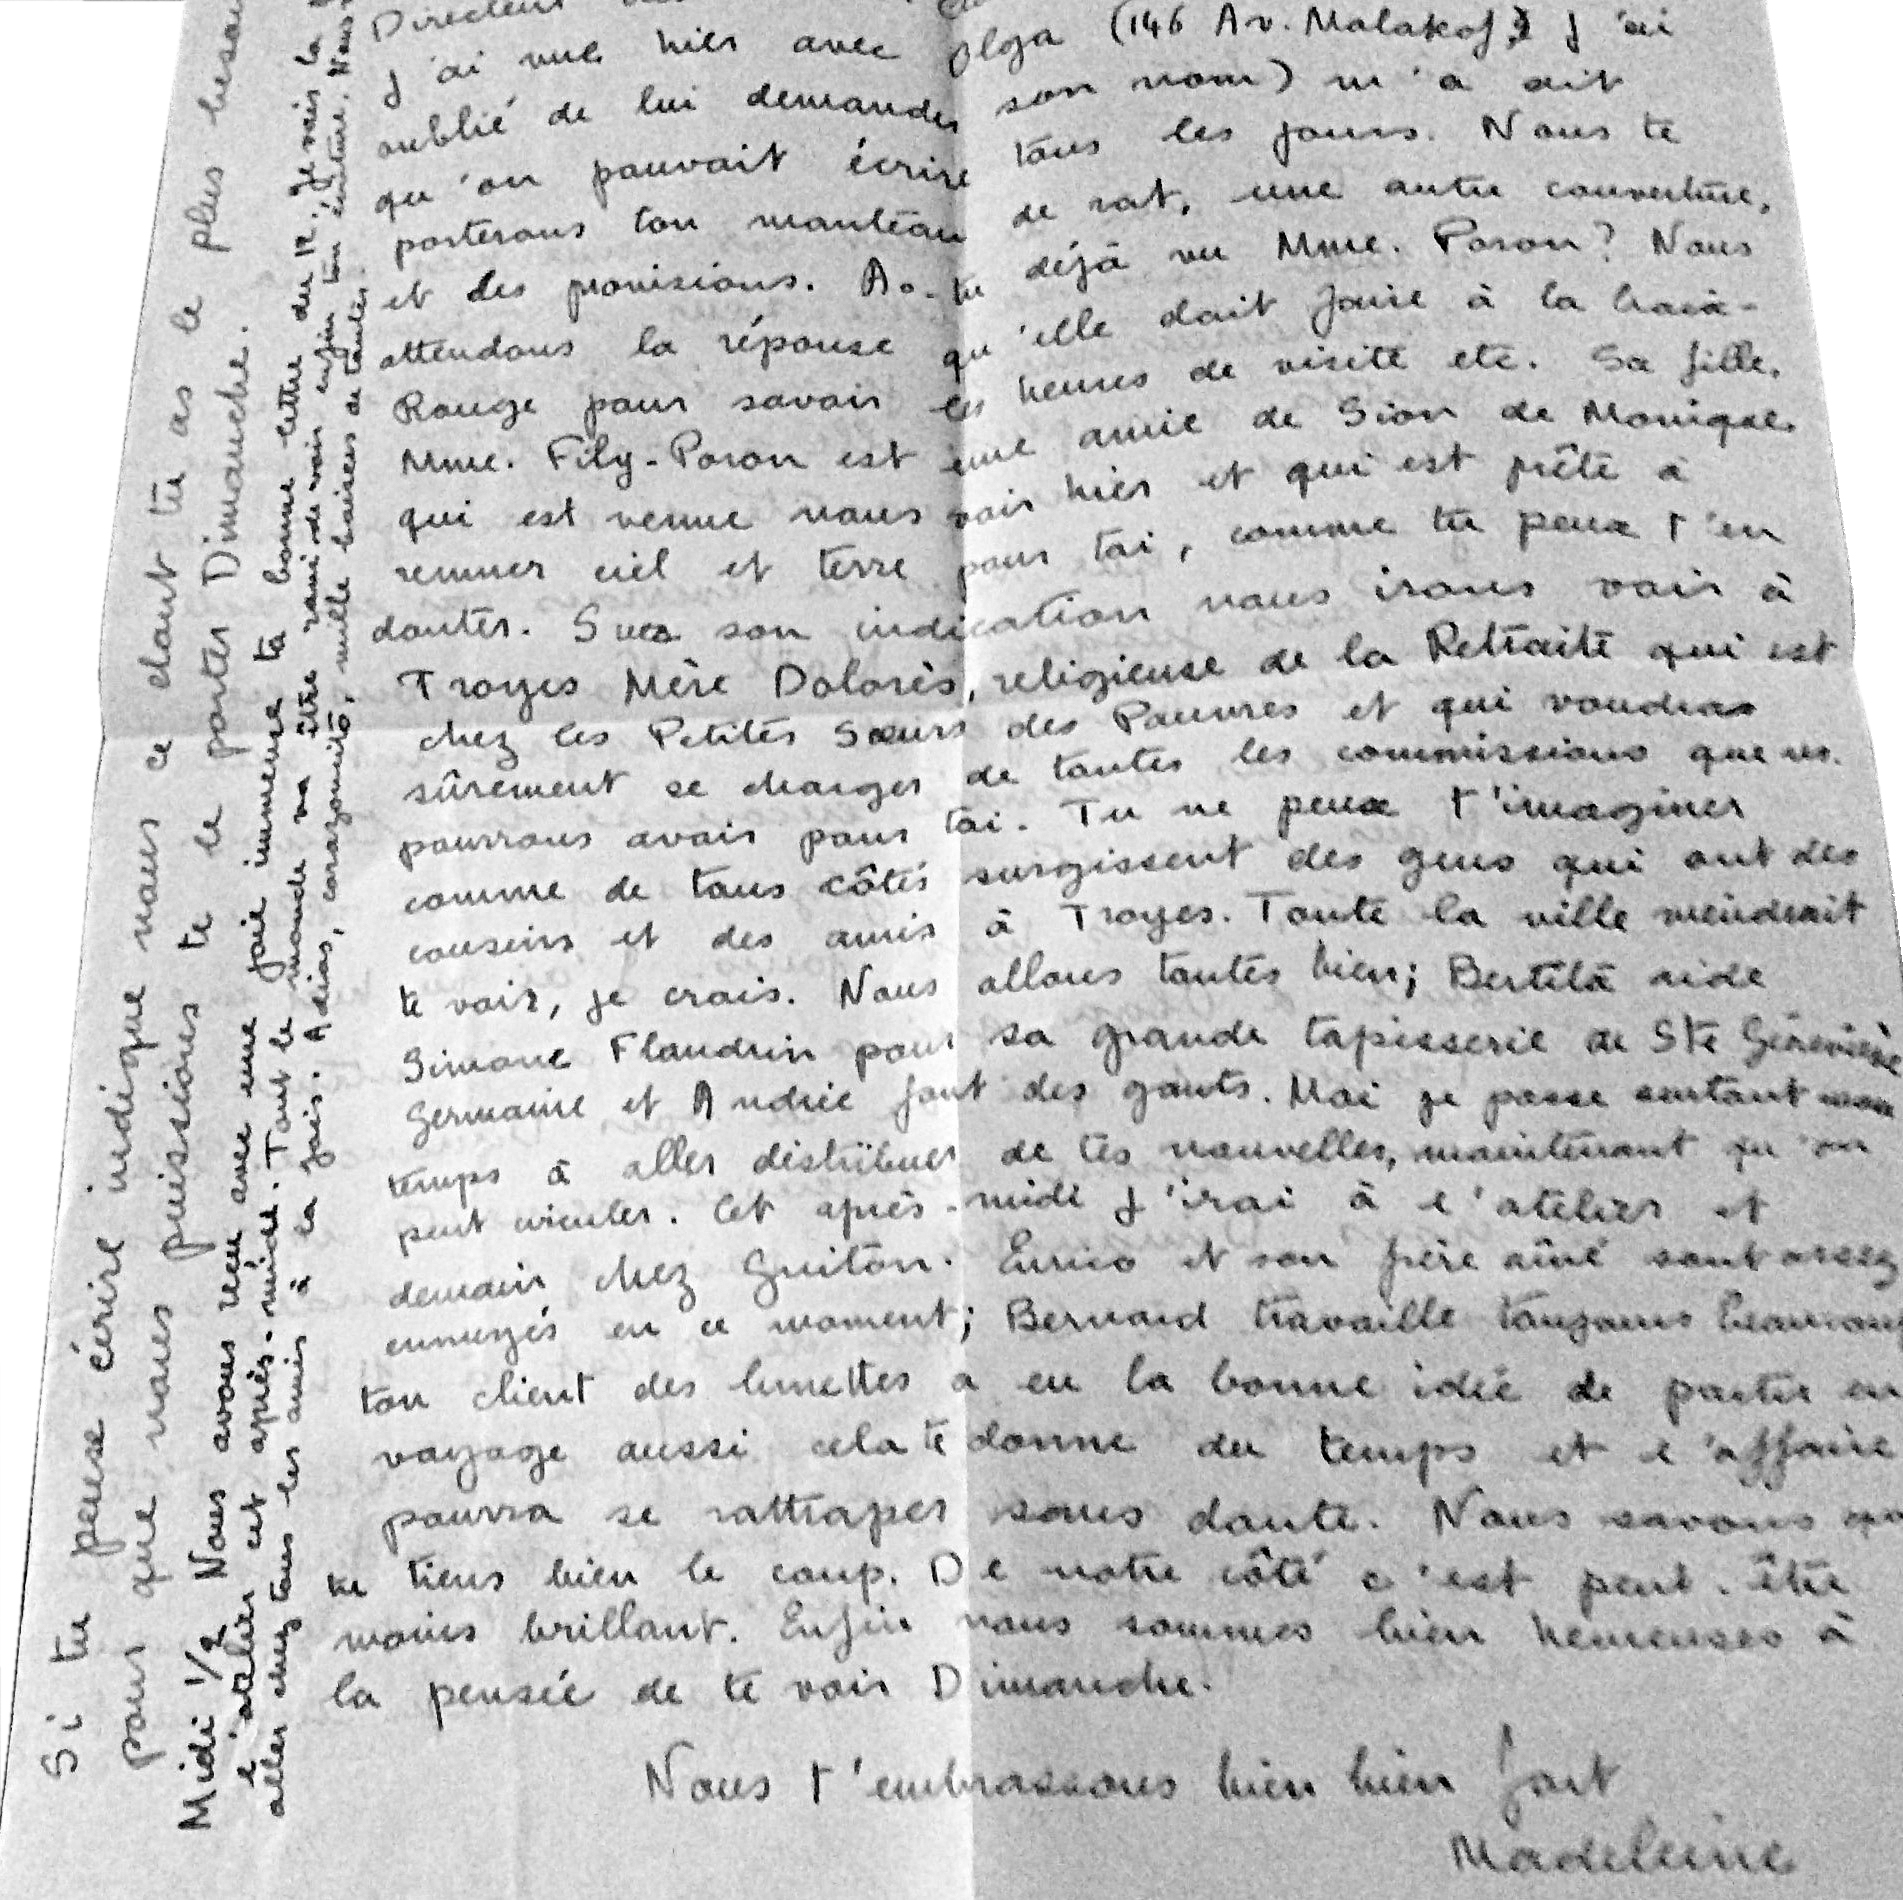 Directeur
j'ai vue hier avec Olga (146 Av. Malakof, j'ai
oublié de lui demander son nom) m'a dit
qu'on pouvait écrire tous les jours. Nous te
porterons ton manteau de rat, une autre couverture,
et des provisions. As-tu déjà vu Mme. Poron? Nous
attendons la réponse qu'elle doit faire à la Croix-
Rouge pour savoir les heures de visite etc. Sa fille,
Mme. Fily-Poron est une amie de Sion de Monique
qui est venue nous voir hier et qui est prête à
remuer ciel et terre pour toi, comme tu peux t'en
douter. Sur son indication nous irons voir à
Troyes Mère Dolorès, religieuse de la Retraite qui est
chez les Petites Sœurs des Pauvres et qui voudra
sûrement se charger de toutes les commissions que ns.
pourrons avoir pour toi. Tu ne peux t'imaginer
comme de tous côtés surgissent des gens qui ont des
cousins et des amis à Troyes. Toute la ville viendrait
te voir, je crois. Nous allons toutes bien; Bertila aide
Simone Flandrin pour sa grande tapisserie de Ste Geneviève
Germaine et Andrée font des gants. Moi je passe surtout mon
temps à aller distribuer de tes nouvelles, maintenant qu'on
peut circuler. Cet après-midi j'irai à l'atelier et
demain chez Guiton. Enrico et son frère aîné sont assez
ennuyés en ce moment; Bernard travaille toujours beaucoup
ton client des lunettes a eu la bonne idée de partir en
voyage aussi cela te donne du temps et l'affaire
pourra se rattraper sans doute. Nous savons que
tu tiens bien le coup. De notre côté c'est peut-être
moins brillant. Enfin nous sommes bien heureuses à
la pensée de te voir Dimanche.
Nous t'embrassons bien bien fort
Madeleine
Si tu peux écrire indique nous ce dont tu as le plus besoin
pour que nous puissions te le porter Dimanche.
Midi 1/2 Nous avons reçu avec une joie immense ta bonne lettre du 12. Je vais la
l'atelier cet après-midi. Tout le monde va être ravi de voir enfin ton écriture. Nous
aller chez tous les amis à la fois. Adios, corazoncito, mille baisers de toutes.